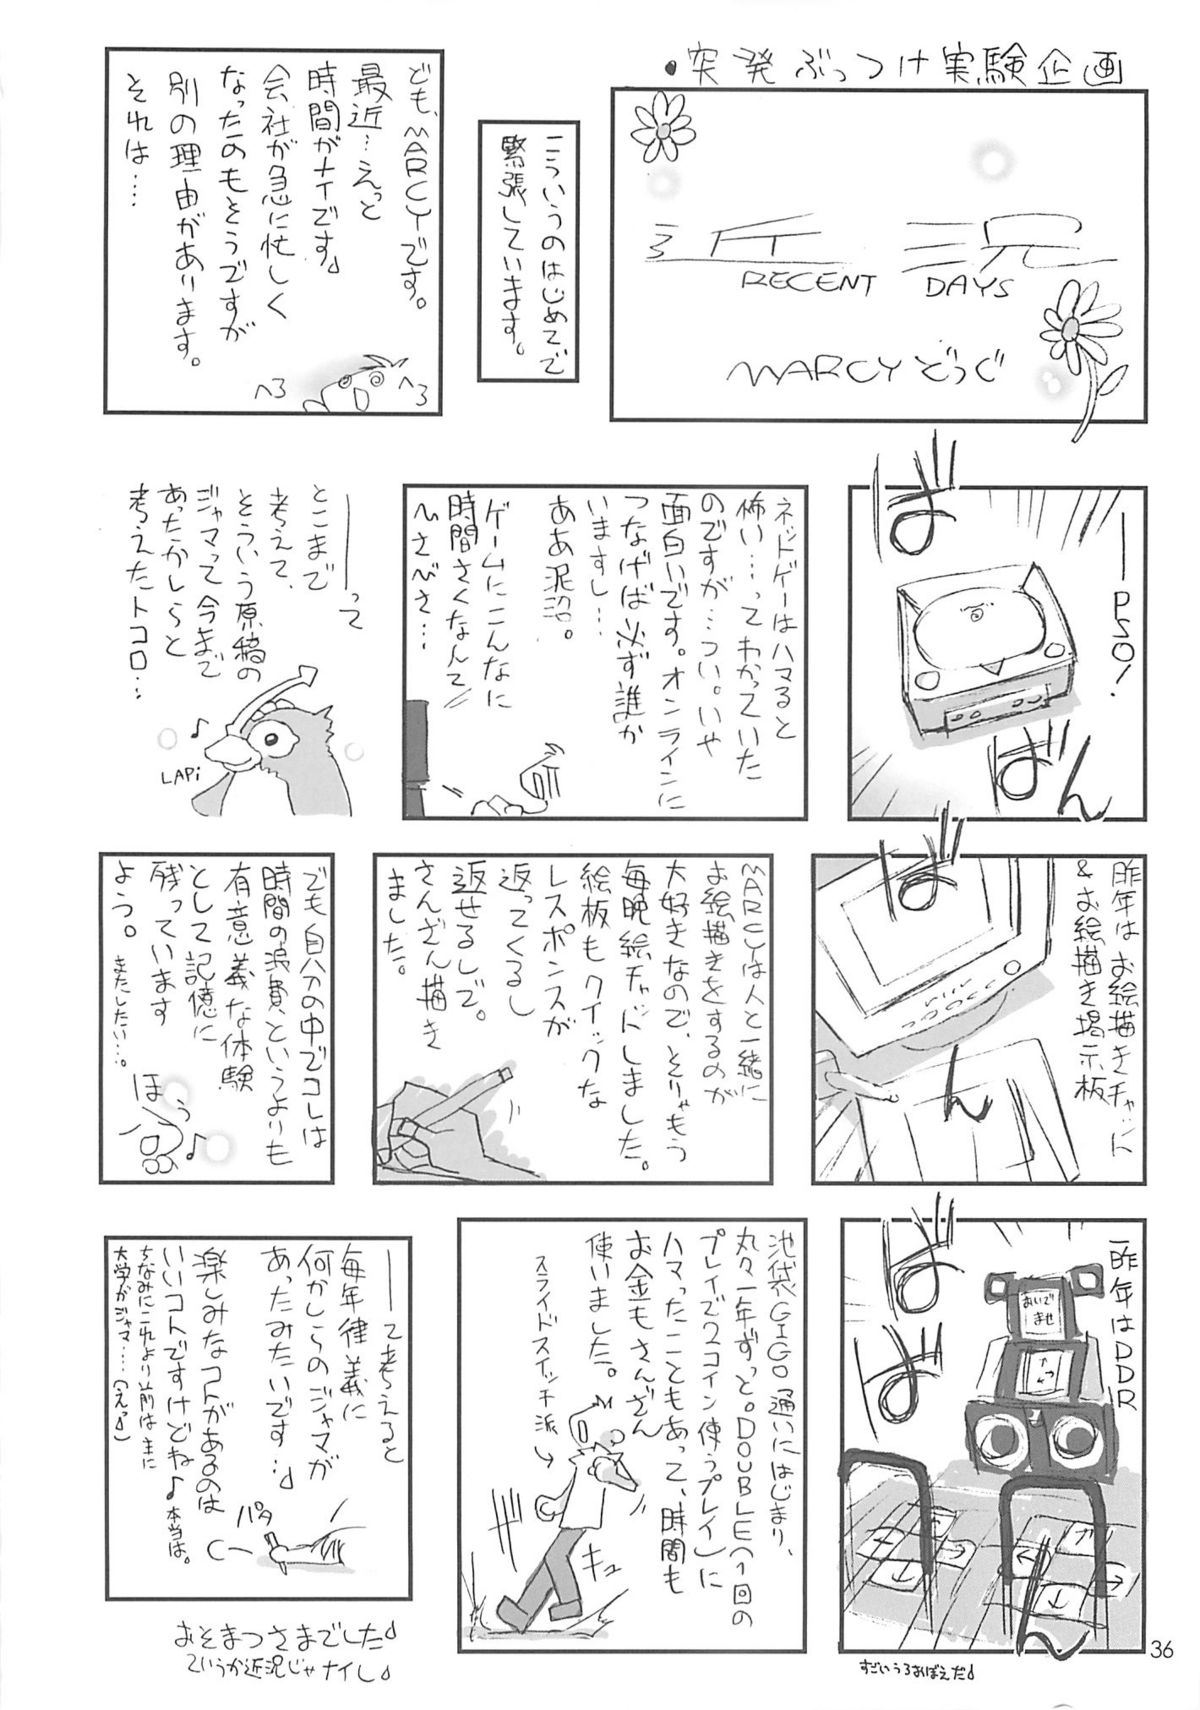 ・突発ぶっつけ実験企画
RECENT DAYS
MARCYどっぐ
こういうのはじめてで
緊張しています。
ども、MARCYです。
最近…えっと
時間がナイです。
会社が急に忙しく
なったのもそうですが
別の理由があります。
それは……
へろ
へろ
―PSO!
ばばん
ネットゲーはハマると
怖い…ってわかっていた
のですが…つい。いや
面白いです。オンラインに
つなげば必ず誰か
いますし…
ああ泥沼。
ゲームにこんなに
時間さくなんて
―って
とこまで
考えて、
そういう原稿の
ジャマって今まで
あったかしらと
考えたトコロ…
♪
LAPi
昨年はお絵描きチャット
&お絵描き掲示板
ばん
MARCYは人と一緒に
お絵描きをするのが
大好きなので、とりゃもう
毎晩絵チャットしました。
絵板もクイックな
レスポンスが
返ってくるし
返せるしで。
さんざん描き
ました。
でも自分の中でコレは
時間の浪費、というよりも
有意義な体験
として記憶に
残っています
よう。
またしたい…。
ほうっ♪
一昨年はDDR
おいで
ませ
ばばば
すごいうろおぼえだ
池袋GIGO通いにはじまり、
丸々一年ずっと。DOUBLE(1回の
プレイで2コイン使うプレイ)に
ハマったこともあって、時間も
お金もさんざん
使いました。
スライドスイッチ派
M
キュ
―て考えると
毎年律義に
何かしらのジャマが
あったみたいです…
楽しみなコトがあるのは
いいコトですけどね♪
本当は。
ちなみにこれより前は主に
大学がジャマ……(えっ)
パタ
おそまつさまでした
ていうか近況じゃナイし
36